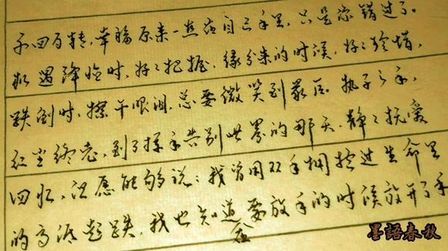 千回百转,幸福原来一直在自己手里,只是您错过了。
机遇降临时,好好把握,缘分来的时候,好好珍惜,
跌倒时,擦干眼泪,总要微笑到最后,执子之手,
红尘终老,到了挥手告别世界的那天,静静把爱
回忆,但愿能够说:我曾用双手拥抚过生命里
的高低起跌,我也知道要在放手的时候放开了手
墨語春秋